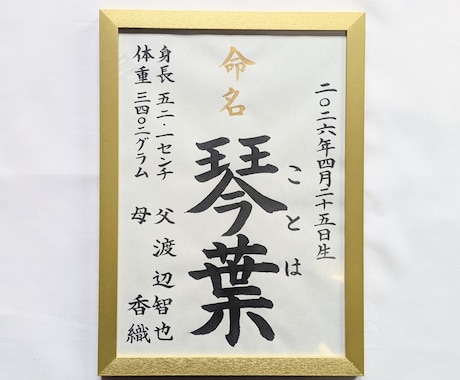 命名
二〇二六年四月二十五日生
ことは
琴葉
身長 五二・一センチ
体重 三四〇二グラム
父 渡辺智也
母 香織